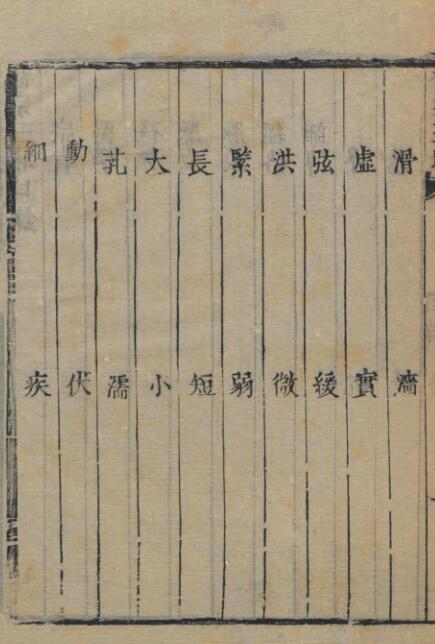 滑 濇
虛 實
弦 緩
洪 微
緊 弱
長 短
大 小
芤 濡
動 伏
細 疾